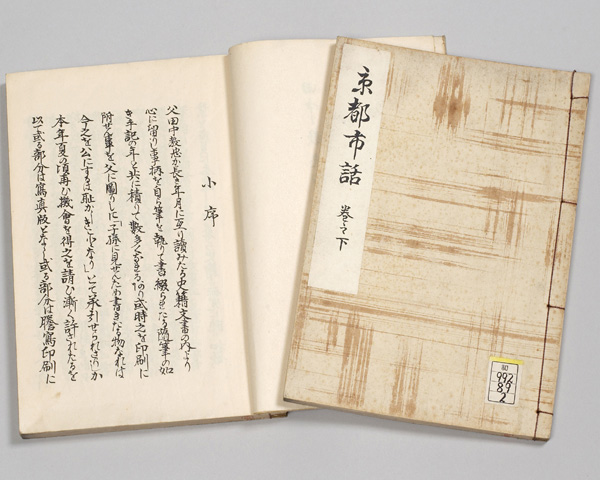 小序
父田中教忠が長き年月に亙り讀みたる史籍文書の内より
心に留りし事柄を自ら筆を執りて書綴られたる隨筆の如
き手記の年と共に積りて數多くなれるあり或時之を印刷に
附せん事を父に圖りしに「子孫に見せんため書きたる物なれば
今之を公にするは恥かしきことなり」とて承引せられざりしが
本年夏の頃再び機會を得之を請ひ漸く許されたるを
以て或る部分は寫眞版となし或る部分は謄寫印刷に
京都市話 巻之下
992
8.9
2